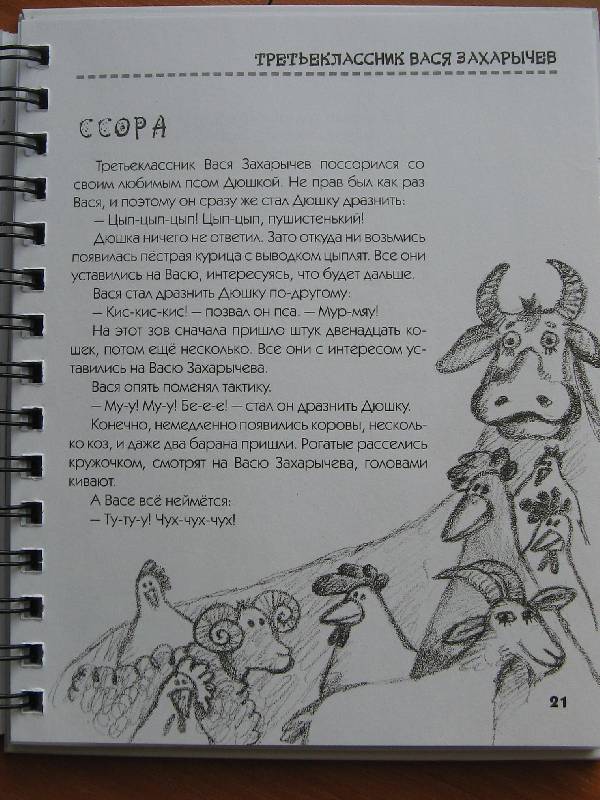 ТРЕТЬЕКЛАССНИК ВАСЯ ЗАХАРЫЧЕВ
ССОРА
Третьеклассник Вася Захарычев поссорился со
своим любимым псом Дюшкой. Не прав был как раз
Вася, и поэтому он сразу же стал Дюшку дразнить:
– Цып-цып-цып! Цып-цып, пушистенький!
Дюшка ничего не ответил. Зато откуда ни возьмись
появилась пёстрая курица с выводком цыплят. Все они
уставились на Васю, интересуясь, что будет дальше.
Вася стал дразнить Дюшку по-другому:
– Кис-кис-кис! – позвал он пса. – Мур-мяу!
На этот зов сначала пришло штук двенадцать ко-
шек, потом ещё несколько. Все они с интересом ус-
тавились на Васю Захарычева.
Вася опять поменял тактику.
– Му-у! Му-у! Бе-е-е! – стал он дразнить Дюшку.
Конечно, немедленно появились коровы, несколь-
ко коз, и даже два барана пришли. Рогатые расселись
кружочком, смотрят на Васю Захарычева, головами
кивают.
А Васе всё неймётся:
– Ту-ту-у! Чух-чух-чух!
21